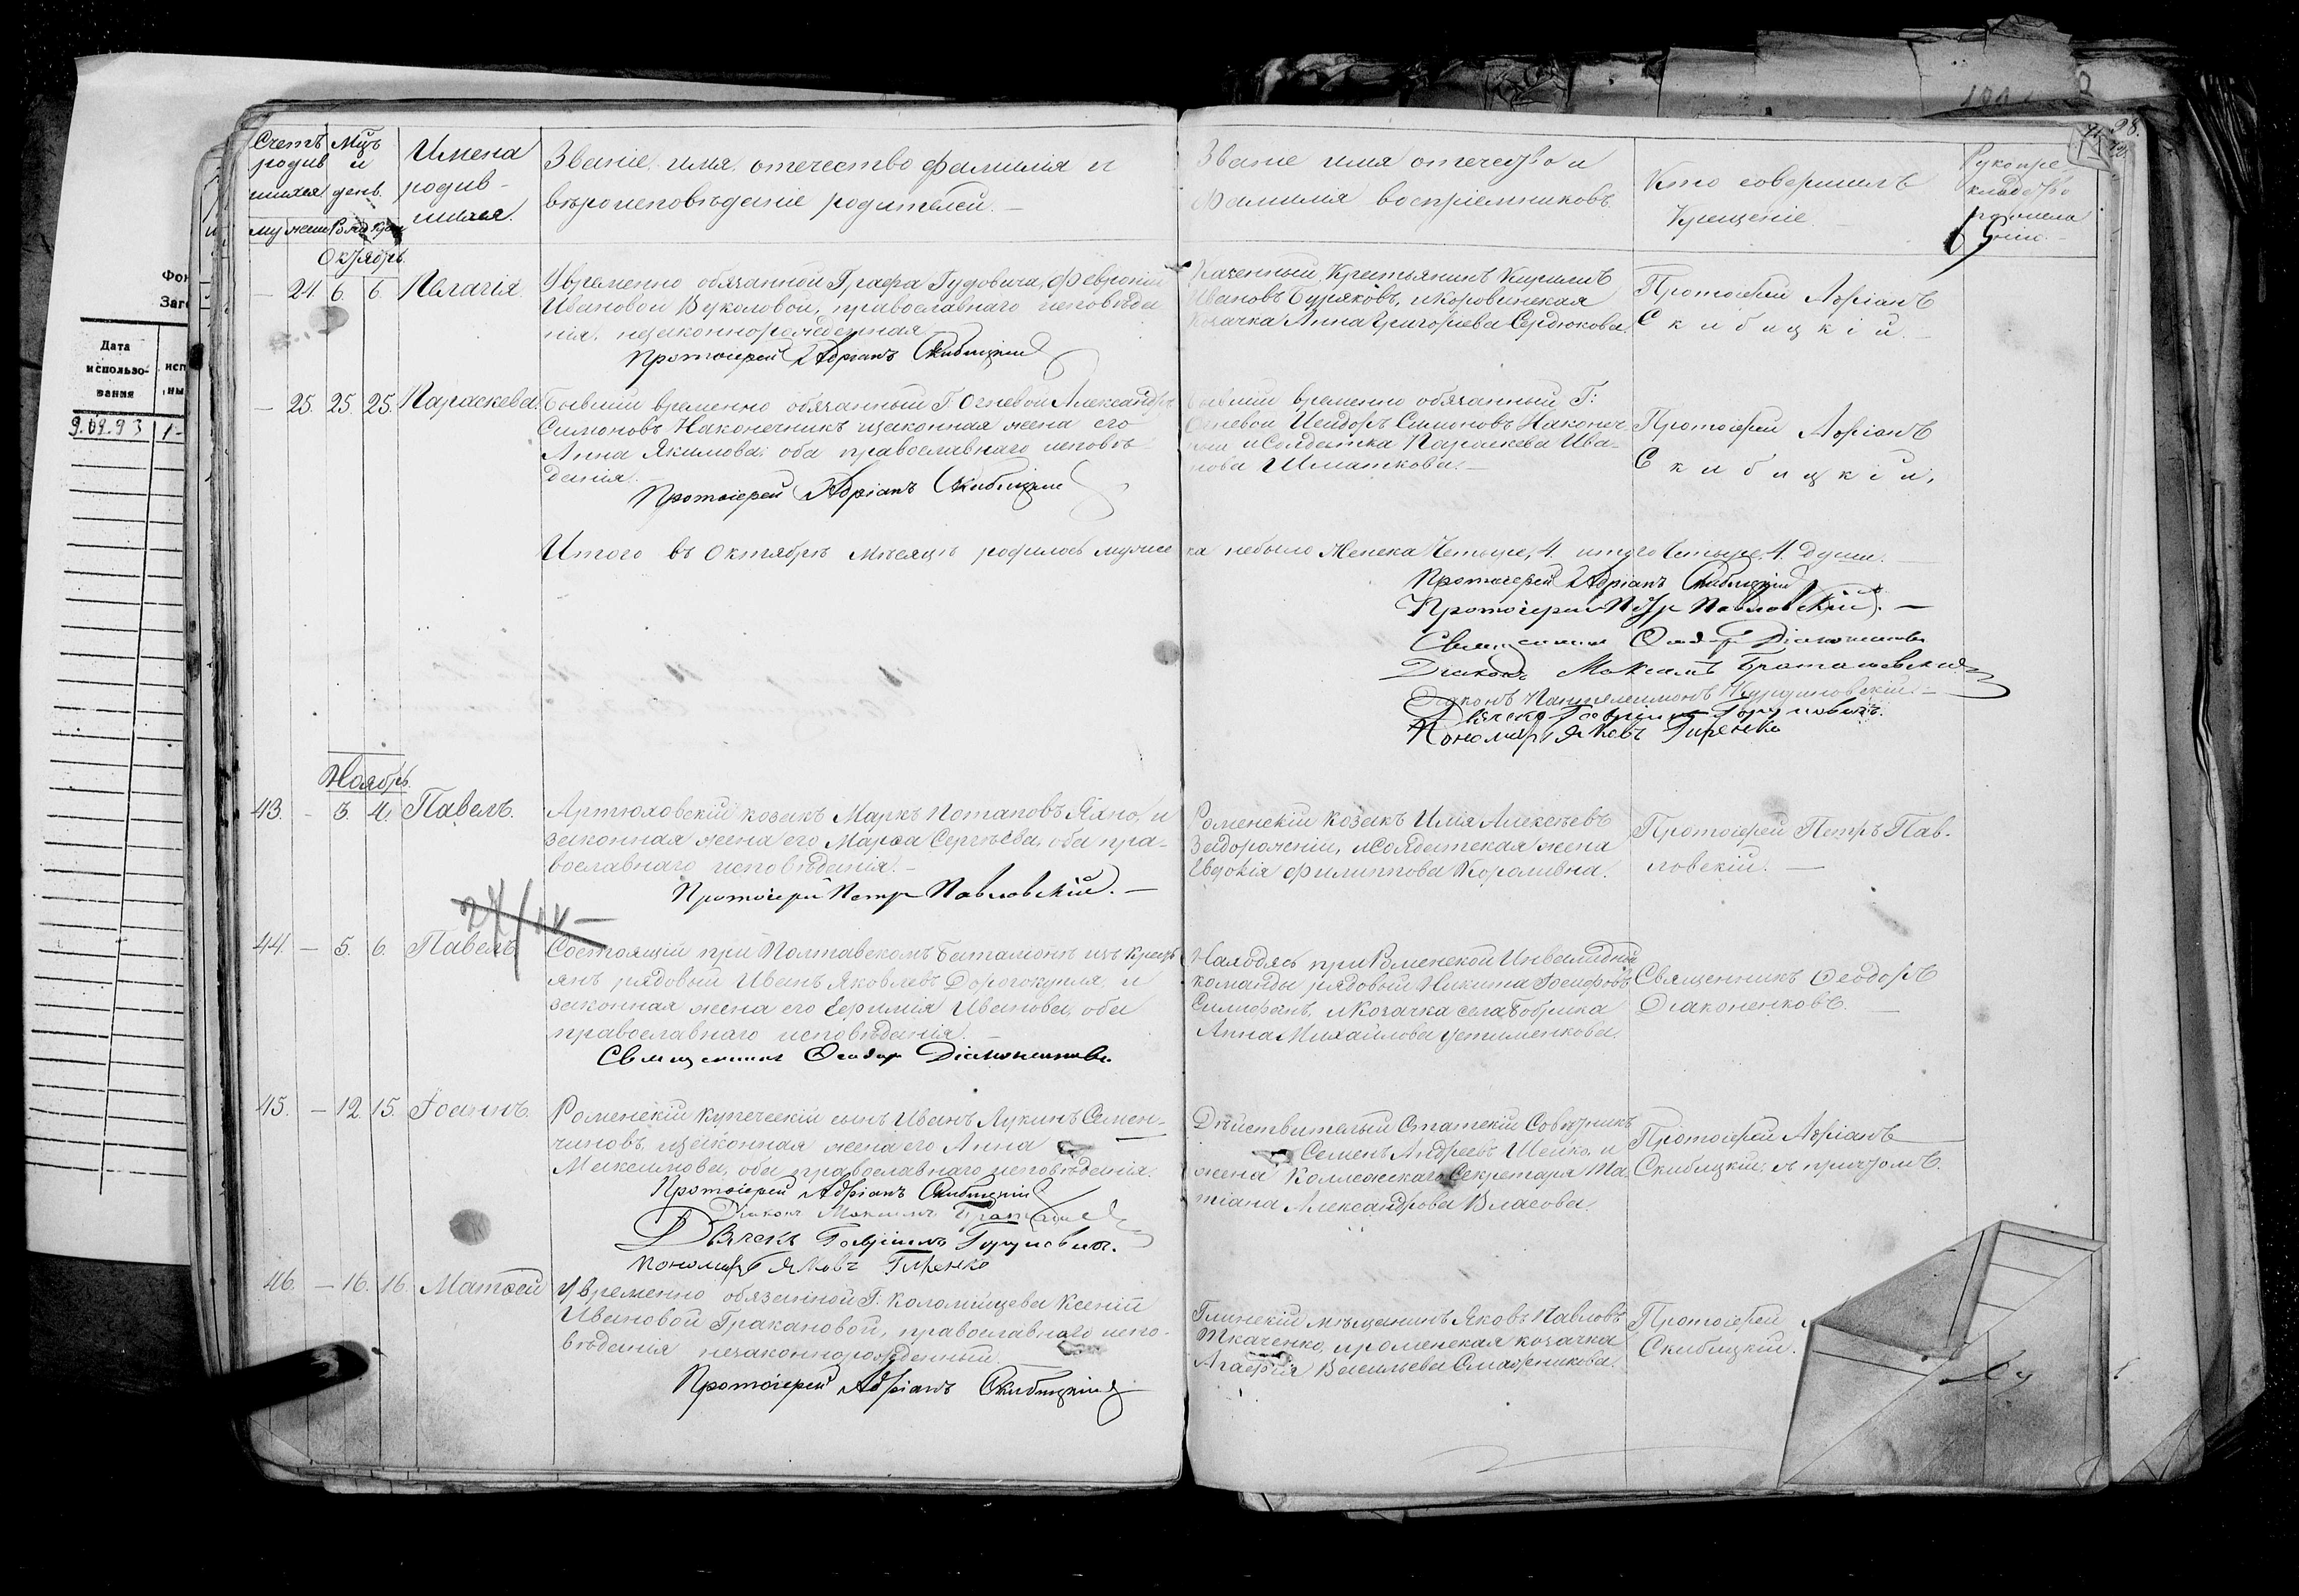 Фон
Заго
Дата
использо-
вания
исп
ны
9.09.93
1-
Счетъ
родив
шихся
Мцъ
и
день.
Имена
родив-
шихся.
Званіе, имя, отечество фамилія и
вѣроисповѣданіе родителей. —
Званіе имя отечество и
Фамилія воспріемниковъ.
Кто совершилъ
Крещеніе.
Рукопре
98.
Октябрь.
— 24. 6. 6. Пелагія.
У временно обязанной Графа Гудовича, Февроніи
Ивановой Вуколовой, православнаго исповѣда
нія, незаконнорожденная.
Протоіерей Адріанъ Скибицкій
Крестьянинъ Кирилъ
Ивановъ Буряковъ, и Коровинская
Козачка Анна Григорьева Сердюкова.
Протоіерей Адріанъ
Скибицкій. —
— 25. 25. 25. Параскева.
Бывшій временно обязанный Г. Огневой Александръ
Симоновъ Наконечникъ и законная жена его
Анна Якимова, оба православнаго исповѣ
данія.
Протоіерей Адріанъ Скибицкій
Бывшій временно обязанный Г:
Огневой Исидоръ Симоновъ Наконеч
и Солдатка Параскева Ива-
нова Шматкова. —
Протоіерей Адріанъ
Скибицкій,
Итого въ Октябрѣ мѣсяцѣ родилось мужеска небыло Женска Четыре, 4. итого Четыре, 4. души.
Протоіерей Адріанъ Скибицкій
Протоіерей Петръ Павловскій. —
Священникъ Ѳеодоръ Діаконенковъ
Діаконъ Максимъ
Діаконъ Пантелеимонъ
Дьячекъ
Пономарь Яковъ Гиренко
Ноябрь.
43. — 3. 4. Павелъ.
Артюховскій козакъ Маркъ Потаповъ Яхно, и
законная жена его Марѳа Сергѣева, оба пра-
вославнаго исповѣданія. —
Протоіерей Петръ Павловскій. —
Роменскій козакъ Илія Алексѣевъ
Задорожній, и Солдатская жена
Евдокія Филиппова Кораливна.
Протоіерей Петръ Пав-
ловскій. —
44. — 5. 6. Павелъ.
Состоящій при Полтавскомъ баталіонѣ изъ крест
янъ рядовый Иванъ Яковлевъ Дорогокупля, и
законная жена его Евфимія Иванова, оба
православнаго исповѣданія. —
Священникъ Ѳеодоръ Діаконенковъ.
Находясь при Роменской Инвалидной
команды рядовый Никита Іосифовъ
и Козачка села Бобрика
Анна Михайлова Устименкова.
Священникъ Ѳеодоръ
Діаконенковъ. —
45. — 12. 15. Іоаннъ.
Роменскій купеческій сынъ Иванъ Лукинъ Семен-
чиновъ, и законная жена его Анна —
Максимова, оба православнаго исповѣданія.
Протоіерей Адріанъ Скибицкій
Діаконъ Максимъ
Дьячекъ
Пономарь Яковъ Гиренко
Дѣйствительный Статскій Совѣтникъ
Семенъ Андреевъ Шейко, и
жена Коллежскаго Секретаря Та-
тіана Александрова Власова.
Протоіерей Адріанъ
Скибицкій, съ причтомъ.
46. — 16. 16. Матѳей
У временно обязанной Г. Коломійцева Ксеніи
Ивановой Гракановой, православнаго испо-
вѣданія незаконнорожденный. —
Протоіерей Адріанъ Скибицкій
Глинскій мѣщанинъ Яковъ Павловъ
Ткаченко, и роменская козачка
Агафія Васильева
Протоіерей
Скибицкій.